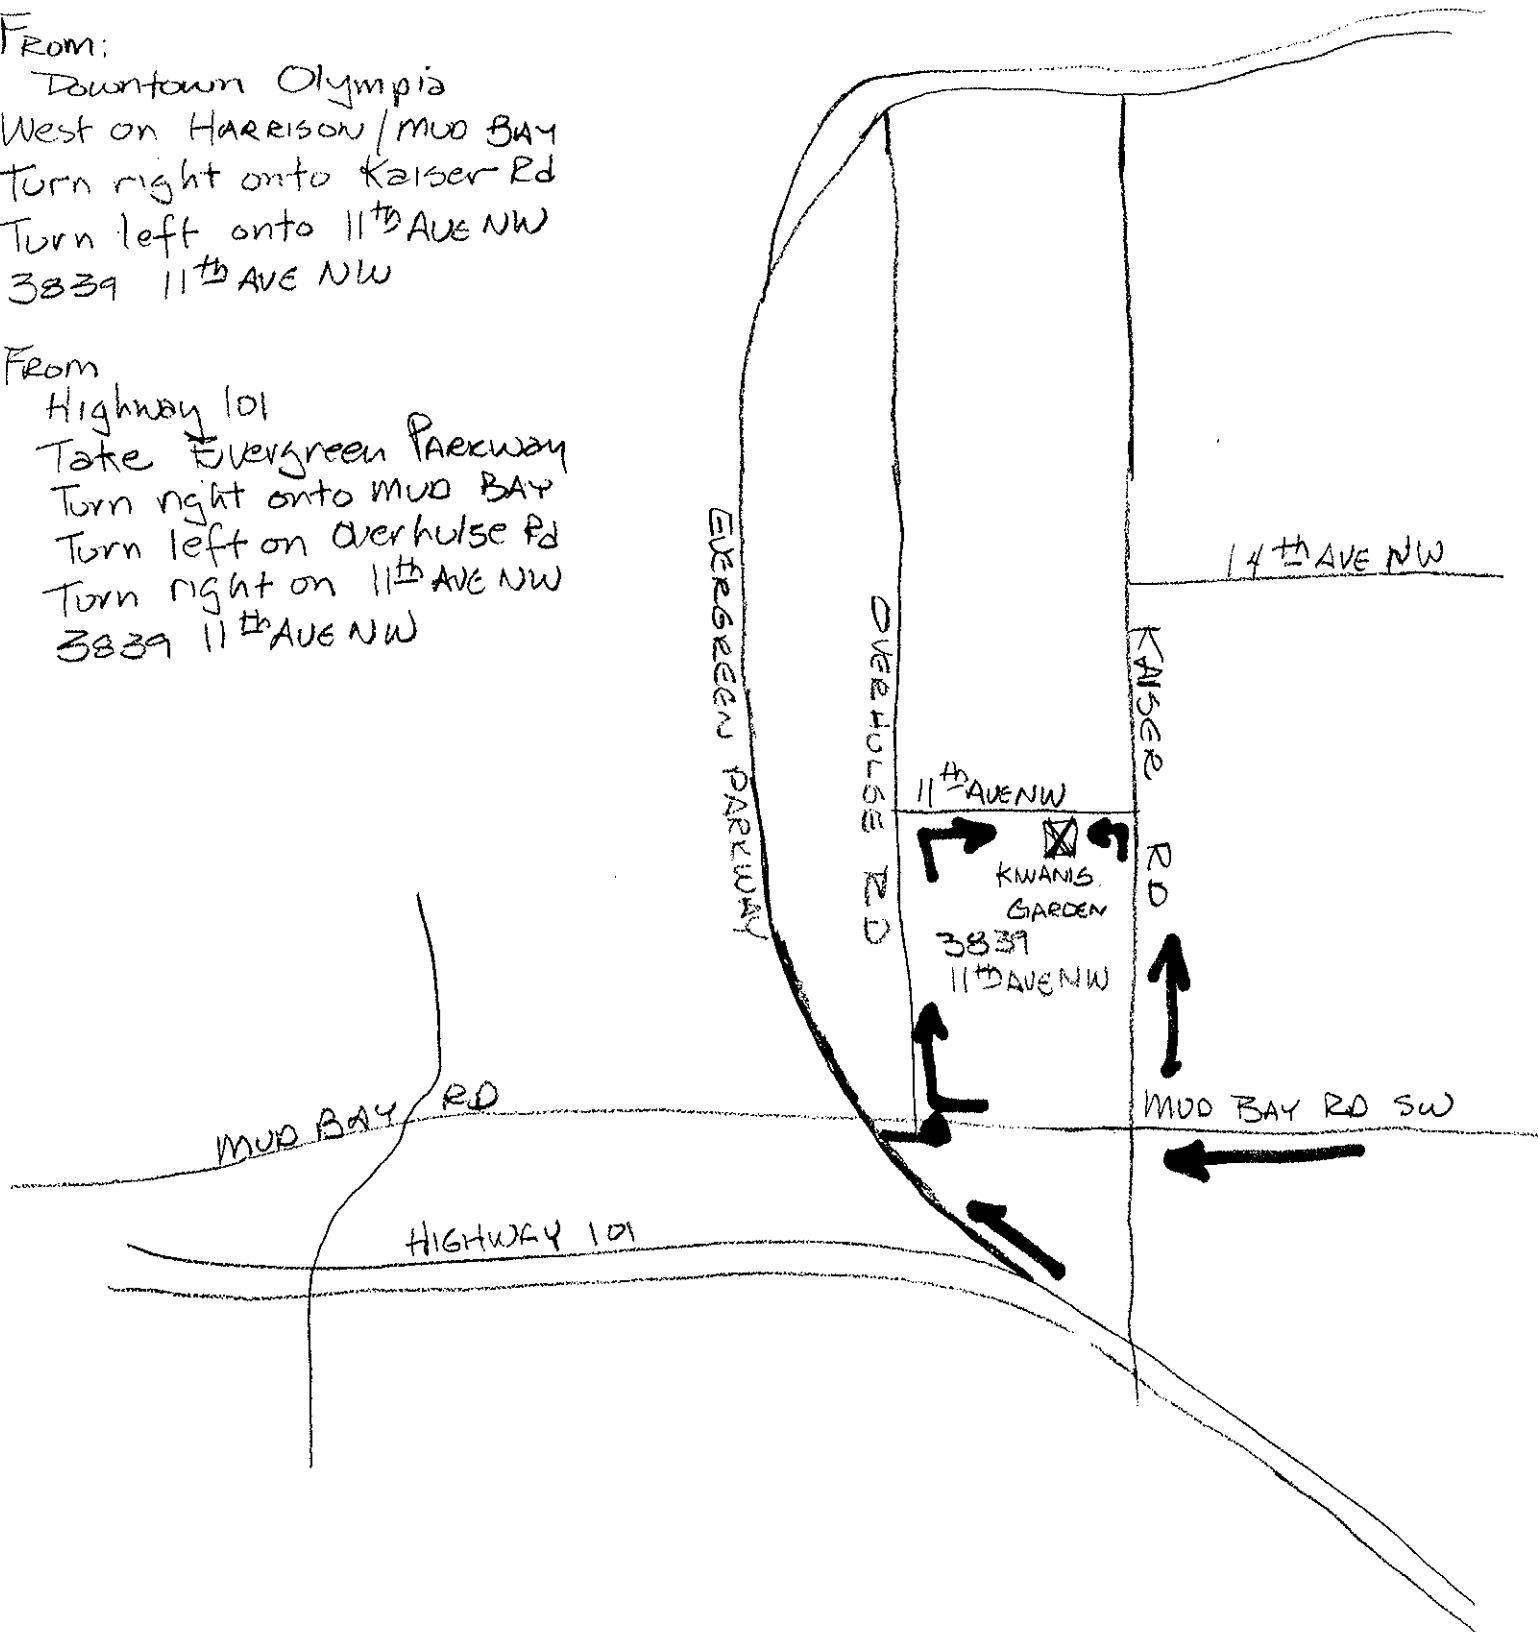 From:
Downtown Olympia
West on HARRISON/MUD BAY
Turn right onto Kaiser Rd
Turn left onto 11th AVE NW
3839 11th AVE NW
From
Highway 101
Take Evergreen Parkway
Turn right onto MUD BAY
Turn left on Overhulse Rd
Turn right on 11th AVE NW
3839 11th AVE NW
EVERGREEN PARKWAY
OVERHULSE RD
KAISER RD
14th AVE NW
11th AVE NW
KWANIS
GARDEN
3839
11th AVE NW
MUD BAY RD
MUD BAY RD SW
HIGHWAY 101